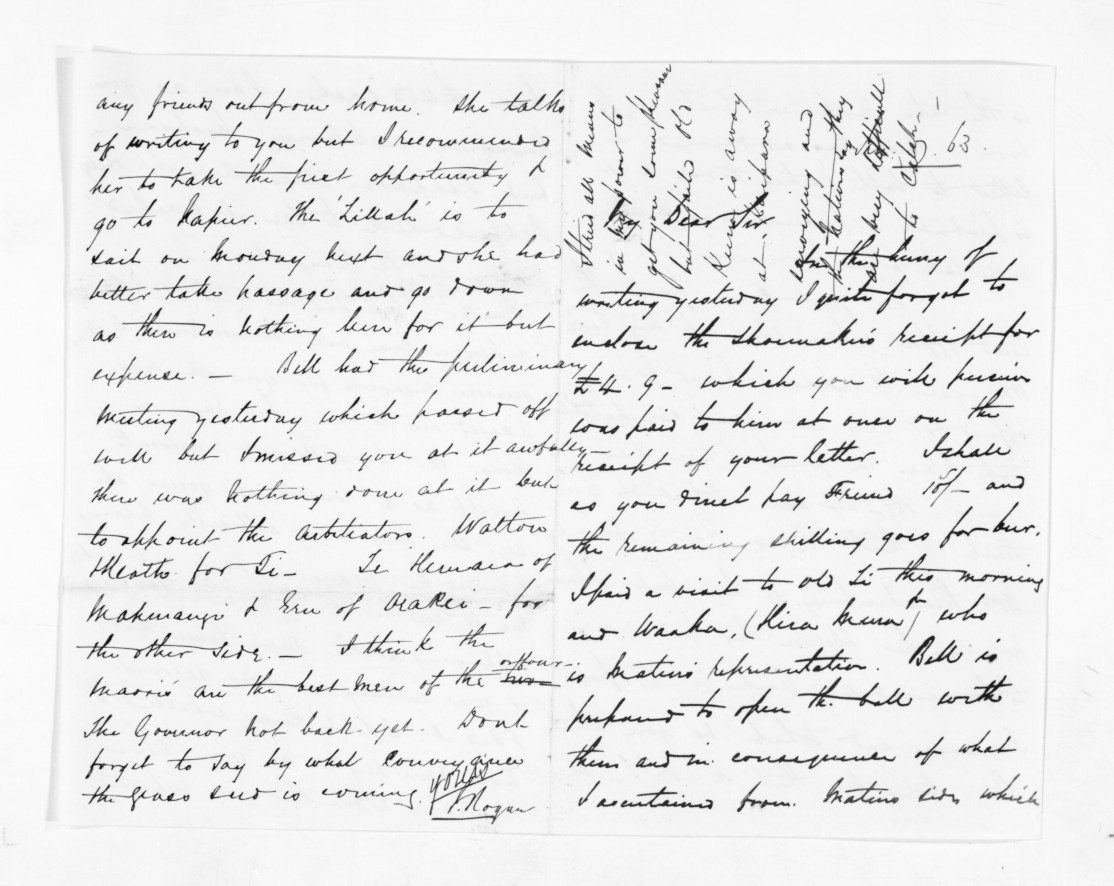 My Dear Sir
In the hurry of
writing yesterday I quite forgot to
enclose the Shoemaker's receipt for
£4.9 - which you will perceive
was paid to him at once on the
receipt of your letter. I shall
as you direct pay Friend 18/- and
the remaining shilling goes for beer.
I paid a visit to old Ti this morning
and Waaka, (Hira Mura) who
is Matini's representation. Bell is
prepared to open the ball with
them and in consequence of what
I ascertained from Matini's side which
any friends out from home. She talks
of writing to you but I recommended
her to take the first opportunity &
go to Napier. The 'Lillah' is to
sail on Monday next and she had
better take passage and go down
as there is nothing here for it but
expense. - Bell had the preliminary
meeting yesterday which passed off
well but I missed you at it awfully
there was nothing done at it but
to appoint the Arbitrators. Walton
Heath for Ti - Te Hemara of
Makurangi & Eru of Orakei - for
the other side. - I think the
Maoris are the best men of the two or four -
The Governor not back yet. Dont
forget to say by what conveyance
the grass seed is coming.
Yours
J. Rogan
I tried all means
in my power to
get you some
but failed Old
is away
at Kaipara
annoying and
the Nations say they
are very difficult
to
63.